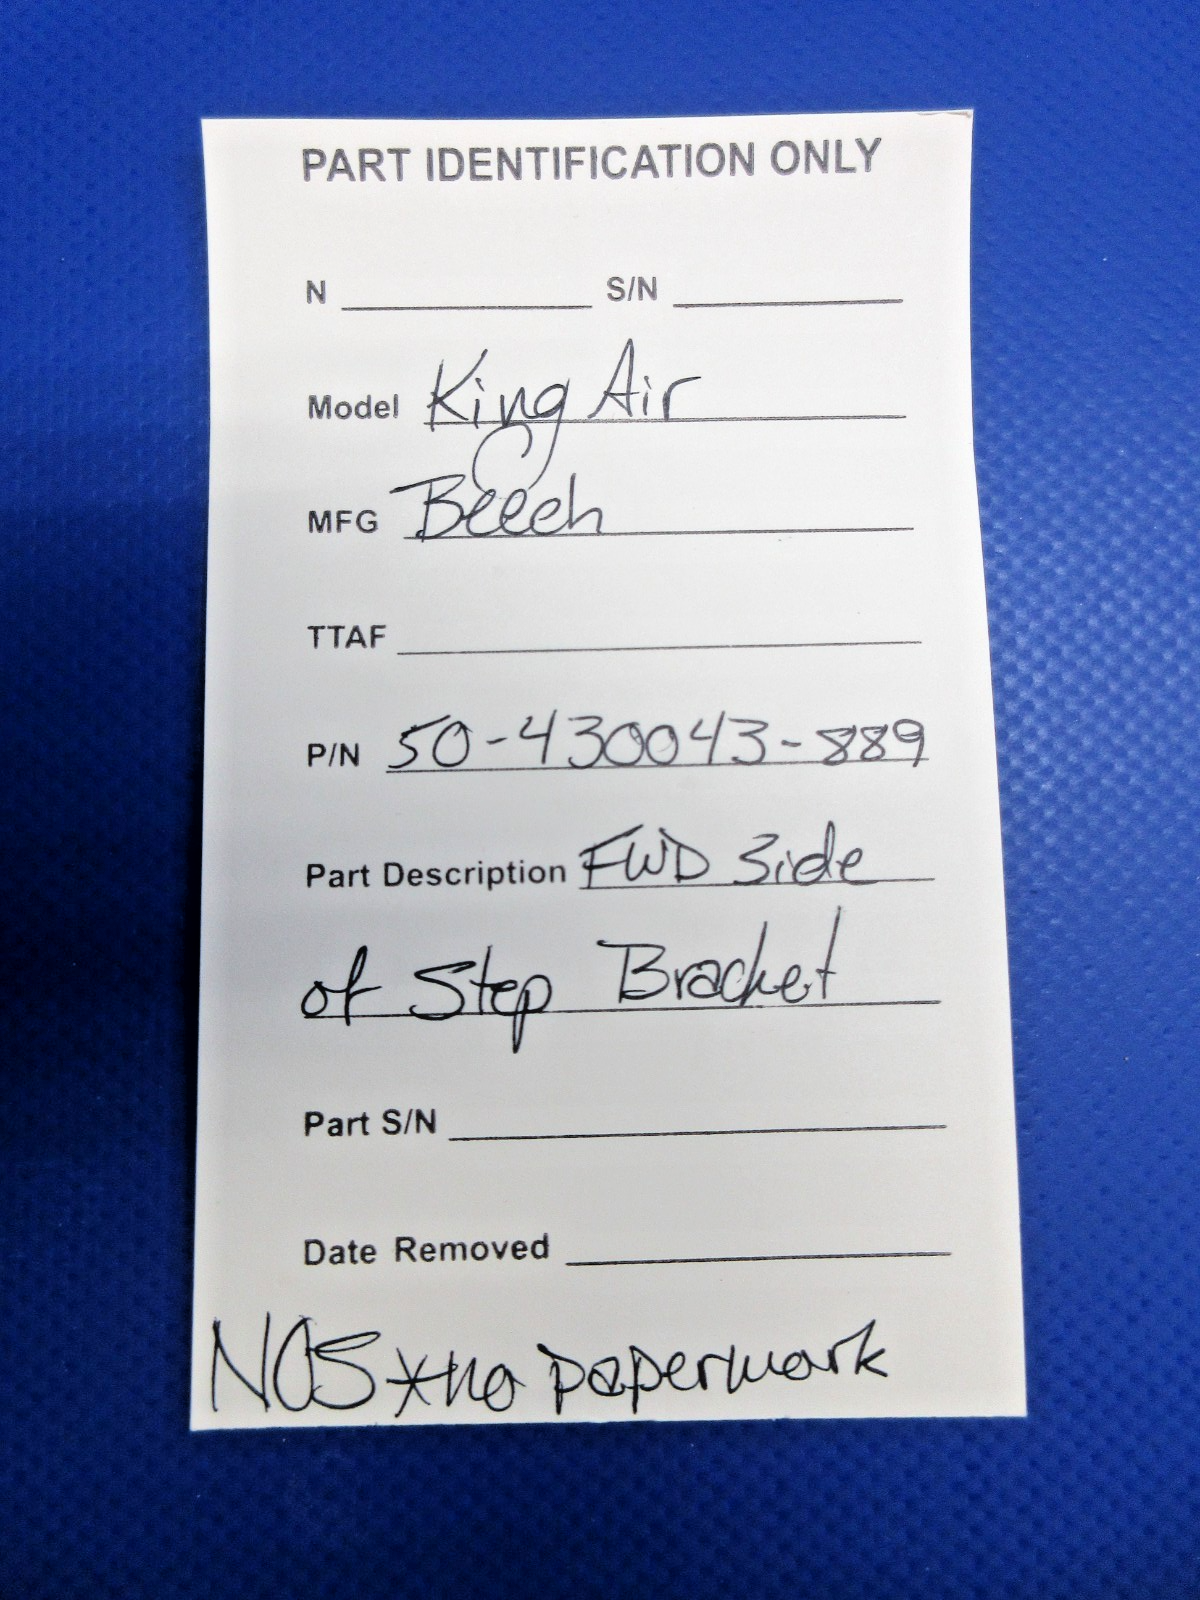 PART IDENTIFICATION ONLY
N S/N
Model King Air
MFG Beech
TTAF
P/N 50-430043-889
Part Description FWD Side
of Step Bracket
Part S/N
Date Removed
NOS *no paperwork